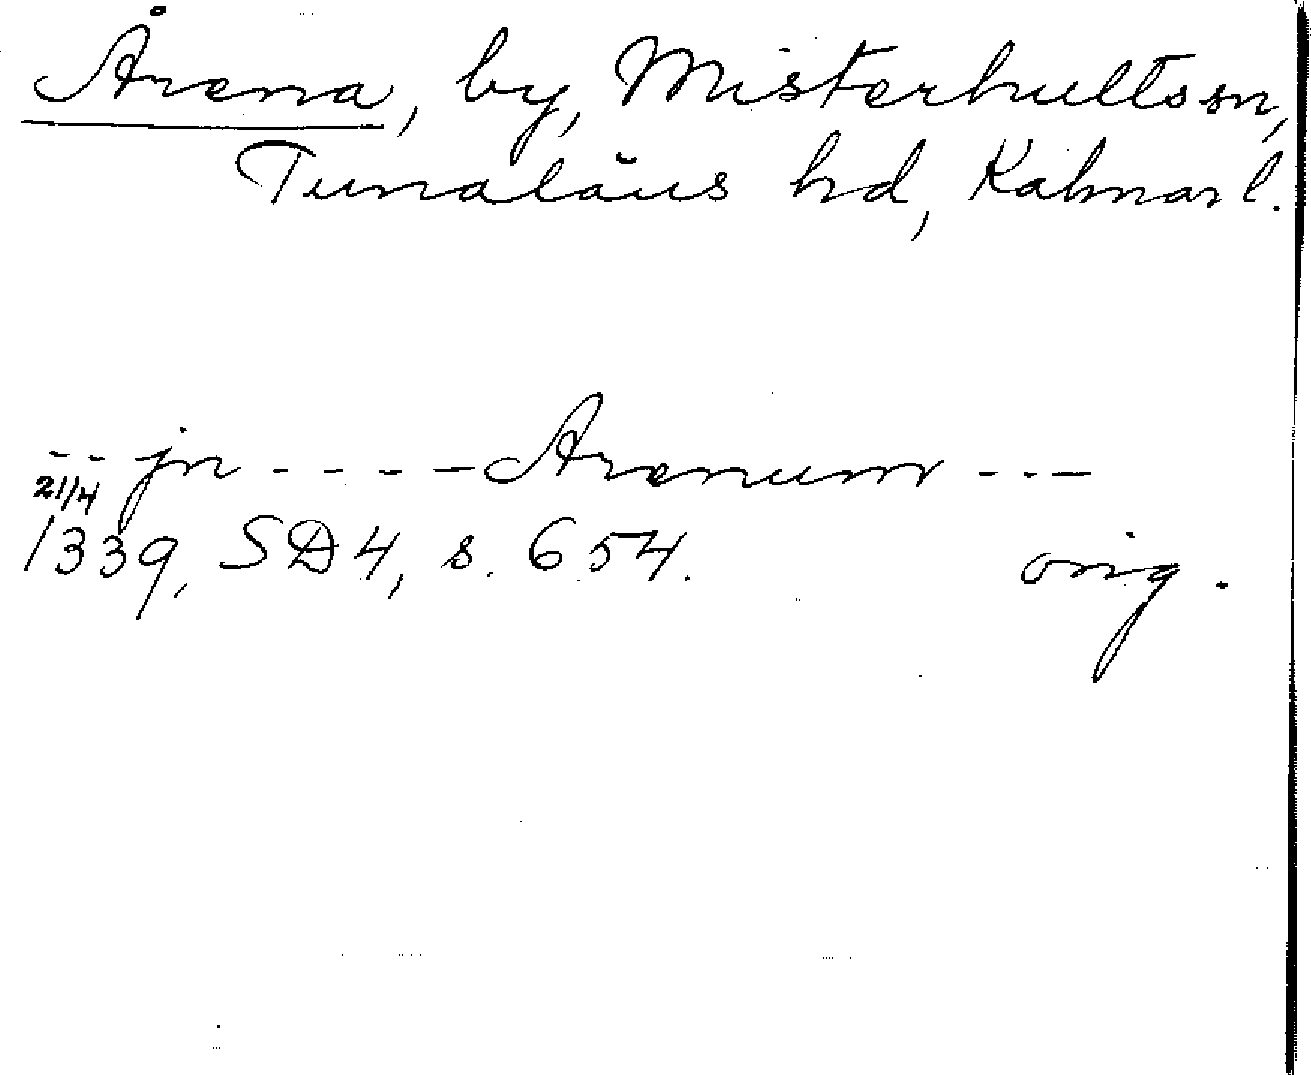 Årena, by, Misterhults sn,
Tunaläns hd, Kalmar l.
-- jn ---- Arenum ---
21/4
1339, SD 4, s. 654. orig.